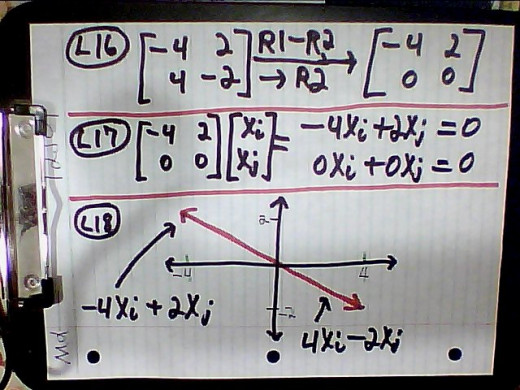 L16 [-4 2 / 4 -2] R1-R2 → R2 [-4 2 / 0 0]
L17 [-4 2 / 0 0] [Xi / Xj] = -4Xi+2Xj=0
0Xi+0Xj=0
L18
2
-4 4
-4Xi+2Xj -2
4Xi-2Xj